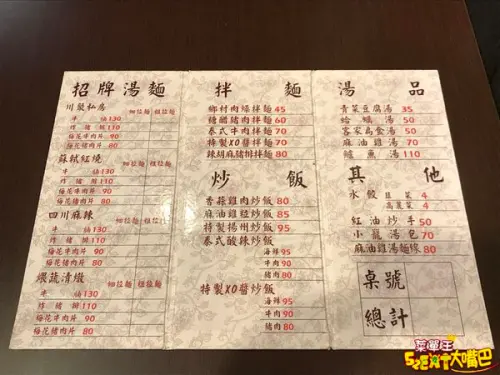 招牌湯麵
川製私房 細拉麵 粗拉麵
牛 腩130
炸豬排110
梅花牛肉片 90
梅花豬肉片 80
蘇軾紅燒 細拉麵 粗拉麵
牛 腩130
炸豬排110
梅花牛肉片 90
梅花豬肉片 80
四川麻辣 細拉麵 粗拉麵
牛 腩130
炸豬排110
梅花牛肉片 90
梅花豬肉片 80
蔬清燉 細拉麵 粗拉麵
牛 腩130
炸豬排110
梅花牛肉片 90
梅花豬肉片 80
拌麵
鄉村肉燥拌麵 45
糖醋豬肉拌麵 60
泰式牛肉拌麵 70
特製XO醬拌麵 70
辣胡麻豬排拌麵 80
炒飯
香菇雞肉炒飯 80
麻油雞炒飯 85
特製揚州炒飯 95
泰式酸辣炒飯
海鮮 95
牛肉 90
豬肉 80
特製XO醬炒飯
海鮮 95
牛肉 90
豬肉 80
湯品
青菜豆腐湯 35
蛤蠣湯 50
客家湯 50
麻油雞湯 70
鱸魚湯 110
其他
水餃 韭菜 4
高麗菜 4
紅油炒手 50
小籠湯包 70
麻油雞湯麵線 80
桌號
總計
菜單王
525EAT大嘴巴